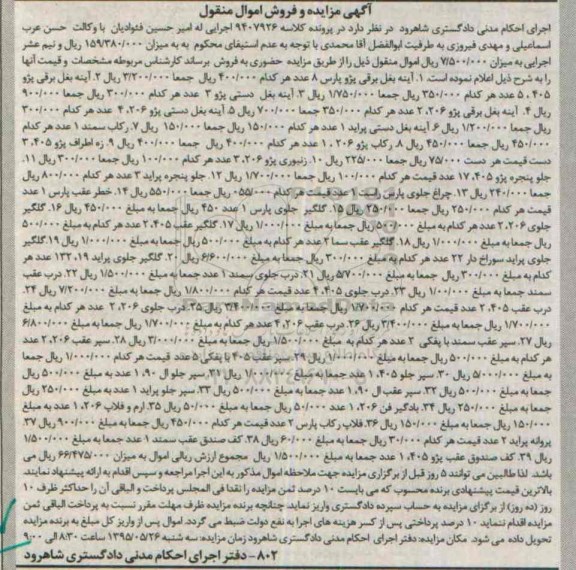 آگهی مزایده و فروش اموال منقول
اجرای احکام مدنی دادگستری شاهرود در نظر دارد در پرونده کلاسه ۹۴۰۷۹۲۶ اجرایی له امیر حسین فئوادیان با وکالت حسن عرب
اسماعیلی و مهدی فیروزی به طرفیت ابوالفضل آقا محمدی با توجه به عدم استیفای محکوم به به میزان ۱۵۹/۳۸۰/۰۰۰ ریال و نیم عشر
اجرایی به میزان ۷/۵۰۰/۰۰۰ ریال اموال منقول ذیل را از طریق مزایده حضوری به فروش برساند کارشناس مربوطه مشخصات و قیمت آنها
را به شرح ذیل اعلام نموده است. ۱. آینه بغل برقی پژو پارس ۸ عدد هر کدام ۴۰۰/۰۰۰ ریال جمعا ۳/۲۰۰/۰۰۰ ریال ۲. آینه بغل برقی پژو
۴۰۵، ۵ عدد هر کدام ۳۵۰/۰۰۰ ریال جمعا ۱/۷۵۰/۰۰۰ ریال ۳. آینه بغل دستی پژو ۳ عدد هر کدام ۳۰۰/۰۰۰ ریال جمعا ۹۰۰/۰۰۰
ریال ۴. آینه بغل برقی پژو ۲۰۶، ۲ عدد هر کدام ۳۵۰/۰۰۰ جمعا ۷۰۰/۰۰۰ ریال ۵. آینه بغل دستی پژو ۲۰۶، ۴ عدد هر کدام ۳۰۰/۰۰۰
ریال جمعا ۱/۲۰۰/۰۰۰ ریال ۶. آینه بغل دستی پراید ۱ عدد هر کدام ۱۵۰/۰۰۰ ریال جمعا ۱۵۰/۰۰۰ ریال ۷. رکاب سمند ۱ عدد هر کدام
۴۵۰/۰۰۰ ریال جمعا ۴۵۰/۰۰۰ ریال ۸. رکاب پژو ۲۰۶، ۱ عدد هر کدام ۴۰۰/۰۰۰ ریال جمعا ۴۰۰/۰۰۰ ریال ۹. زه اطراف پژو ۴۰۵، ۳
دست قیمت هر دست ۷۵/۰۰۰ ریال جمعا ۲۲۵/۰۰۰ ریال ۱۰. زنبوری پژو ۲۰۶، ۳ عدد هر کدام ۱۰۰/۰۰۰ ریال جمعا ۳۰۰/۰۰۰ ریال ۱۱.
جلو پنجره پژو ۴۰۵، ۱۷ عدد قیمت هر کدام ۱۰۰/۰۰۰ ریال جمعا ۱/۷۰۰/۰۰۰ ریال ۱۲. جلو پنجره پراید ۳ عدد هر کدام ۸۰/۰۰۰ ریال
جمعا ۲۴۰/۰۰۰ ریال ۱۳. چراغ جلوی پارس راست ۱ عدد قیمت هر کدام ۵۵۰/۰۰۰ ریال جمعا ۵۵۰/۰۰۰ ریال ۱۴. خطر عقب پارس ۱ عدد
قیمت هر کدام ۲۵۰/۰۰۰ ریال جمعا ۲۵۰/۰۰۰ ریال ۱۵. گلگیر جلوی پارس ۱ عدد ۴۵۰ ریال جمعا به مبلغ ۴۵۰/۰۰۰ ریال ۱۶. گلگیر
جلوی ۲۰۶، ۲ عدد هر کدام به مبلغ ۵۰۰/۰۰۰ ریال جمعا به مبلغ ۱/۰۰۰/۰۰۰ ریال ۱۷. گلگیر عقب ۴۰۵، ۲ عدد هر کدام به مبلغ ۵۰۰/۰۰۰
ریال جمعا به مبلغ ۱/۰۰۰/۰۰۰ ریال ۱۸. گلگیر عقب سما ۲ عدد هر کدام به مبلغ ۵۰۰/۰۰۰ ریال جمعا به مبلغ ۱/۰۰۰/۰۰۰ ریال ۱۹. گلگیر
جلوی پراید سوراخ دار ۲۲ عدد هر کدام به مبلغ ۳۰۰/۰۰۰ ریال جمعا به مبلغ ۶/۶۰۰/۰۰۰ ریال ۲۰. گلگیر جلوی پراید ۱۹، ۱۳۲ عدد هر
کدام به مبلغ ۳۰۰/۰۰۰ ریال جمعا به مبلغ ۵/۷۰۰/۰۰۰ ریال ۲۱. درب جلوی سمند ۱ عدد جمعا به مبلغ ۱/۵۰۰/۰۰۰ ریال ۲۲. درب عقب
سمند جمعا به مبلغ ۱/۰۰۰ ریال ۲۳. درب جلوی ۴۰۵، ۴ عدد قیمت هر کدام ۱/۸۰۰/۰۰۰ ریال جمعا به مبلغ ۷/۲۰۰/۰۰۰ ریال ۲۴.
درب عقب ۴۰۵، ۲ عدد قیمت هر کدام ۱/۷۰۰/۰۰۰ ریال جمعا به مبلغ ۳/۴۰۰/۰۰۰ ریال ۲۵. درب جلوی ۲۰۶، ۲ عدد هر کدام به مبلغ
۱/۷۰۰/۰۰۰ ریال جمعا به مبلغ ۳/۴۰۰/۰۰۰ ریال ۲۶. درب عقب ۲۰۶، ۴ عدد هر کدام به مبلغ ۱/۷۰۰/۰۰۰ ریال جمعا به مبلغ ۶/۸۰۰/۰۰۰
ریال ۲۷. سپر عقب سمند با پفکی ۲ عدد هر کدام به مبلغ ۱/۵۰۰/۰۰۰ ریال جمعا به مبلغ ۳/۰۰۰/۰۰۰ ریال ۲۸. سپر عقب ۲۰۶، ۲ عدد
هر کدام به مبلغ ۵۰۰/۰۰۰ ریال جمعا به مبلغ ۱/۰۰۰/۰۰۰ ریال ۲۹. سپر عقب ۴۰۵ با پفکی ۵ عدد قیمت هر کدام ۱/۰۰۰/۰۰۰ ریال جمعا
به مبلغ ۵/۰۰۰/۰۰۰ ریال ۳۰. سپر جلو ۴۰۵، ۱ عدد جمعا به مبلغ ۱/۰۰۰/۰۰۰ ریال ۳۱. سپر جلو ال ۹۰، ۱ عدد به مبلغ ۵۰۰/۰۰۰ ریال
جمعا به مبلغ ۵۰۰/۰۰۰ ریال ۳۲. سپر عقب ال ۹۰، ۱ عدد جمعا به مبلغ ۵۰۰/۰۰۰ ریال ۳۳. سپر جلو پراید ۱ عدد به مبلغ ۲۵۰/۰۰۰ ریال
جمعا به مبلغ ۲۵۰/۰۰۰ ریال ۳۴. بادگیر فن ۲۰۶، ۱ عدد ۵۰/۰۰۰ ریال جمعا به مبلغ ۵۰/۰۰۰ ریال ۳۵. آرم و فلاپ ۲۰۶، ۱ عدد به مبلغ
۱۵۰/۰۰۰ ریال جمعا به مبلغ ۱۵۰/۰۰۰ ریال ۳۶. فلاپ رکاب پارس ۲ عدد قیمت هر کدام ۴۵۰/۰۰۰ ریال جمعا به مبلغ ۹۰۰/۰۰۰ ریال ۳۷.
پروانه پراید ۲ عدد قیمت هر کدام ۳۰/۰۰۰ ریال جمعا به مبلغ ۶۰/۰۰۰ ریال ۳۸. کف صندق عقب سمند ۱ عدد جمعا به مبلغ ۱/۵۰۰/۰۰۰
ریال ۳۹. کف صندوق عقب پژو ۴۰۵، ۱ عدد جمعا به مبلغ ۱/۵۰۰/۰۰۰ ریال مجموع ارزش ریالی اموال به میزان ۶۶/۴۷۵/۰۰۰ ریال می
باشد. لذا طالبین می توانند ۵ روز قبل از برگزاری مزایده جهت ملاحظه اموال مذکور به این اجرا مراجعه و سپس اقدام به ارائه پیشنهاد نمایند.
بالاترین قیمت پیشنهادی برنده محسوب که می بایست ۱۰ درصد ثمن مزایده را نقدا فی المجلس پرداخت و الباقی آن را حداکثر ظرف ۱۰
روز (ده روز) از برگزای مزایده به حساب سپرده دادگستری واریز نماید. چنانچه برنده مزایده ظرف مهلت مقرر نسبت به پرداخت الباقی ثمن
مزایده اقدام ننماید ۱۰ درصد پرداختی پس از کسر هزینه های اجرا به نفع دولت ضبط می گردد. اموال پس از واریز کل مبلغ به برنده مزایده
تحویل داده می شود. مکان مزایده: دفتر اجرای احکام مدنی دادگستری شاهرود زمان مزایده: سه شنبه ۱۳۹۵/۰۵/۲۶ ساعت ۸:۳۰ الی ۹:۰۰
۸۰۲- دفتر اجرای احکام مدنی دادگستری شاهرود